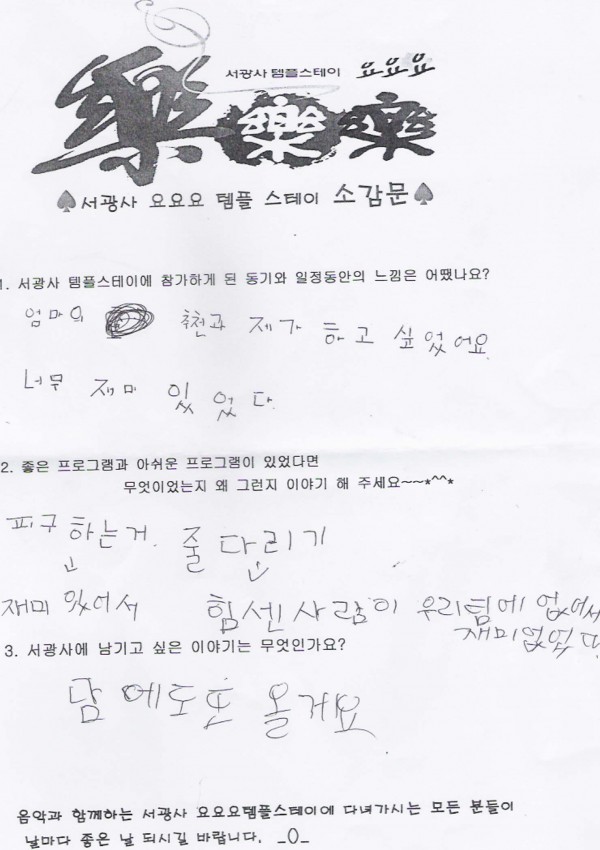 서광사 템플스테이 요요요
樂 樂 樂
♠서광사 요요요 템플 스테이 소감문♠
1. 서광사 템플스테이에 참가하게 된 동기와 일정동안의 느낌은 어땠나요?
엄마의 추천과 제가 하고 싶었어요.
너무 재미 있었다.
2. 좋은 프로그램과 아쉬운 프로그램이 있었다면
무엇이었는지 왜 그런지 이야기 해 주세요~~*^^*
피구 하는거. 줄 다리기
재미 있어서 힘센사람이 우리팀에 없어서
재미없었다.
3. 서광사에 남기고 싶은 이야기는 무엇인가요?
담에도 또 올게요
음악과 함께하는 서광사 요요요템플스테이에 다녀가시는 모든 분들이
날마다 좋은 날 되시길 바랍니다. _()_